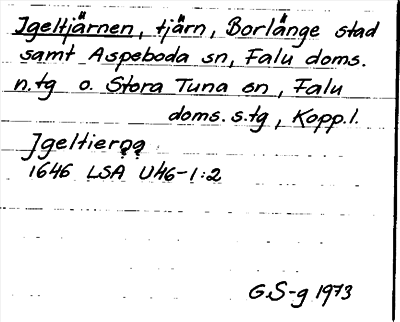 Igeltjärnen, tjärn, Borlänge stad
samt Aspeboda sn, Falu doms.
n.tg o. Stora Tuna sn, Falu
doms. s.tg, Kopp.l.
Igeltierǫą
1646 LSA U46-1:2
G.S-g 1973